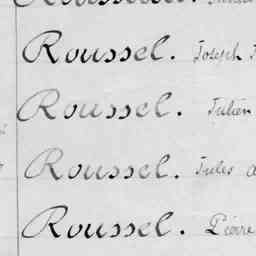 Roussel. Joseph
Roussel. Julien
Roussel. Jules
Roussel. Pierre